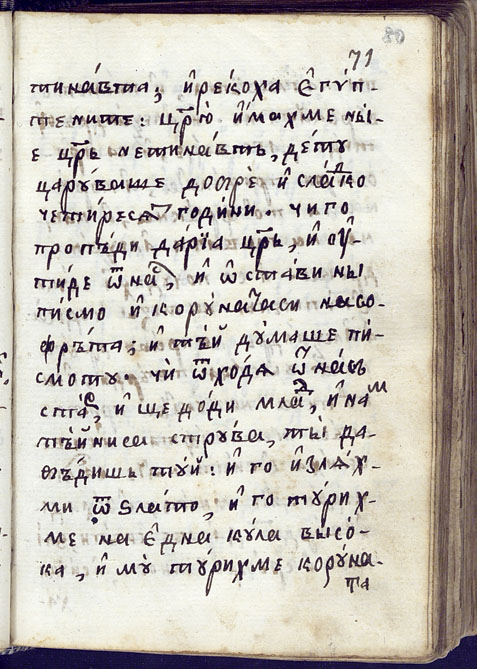 80
71
тина́вта, и҆реко́ха є҆гѵ́п-
тените: цр҃ю̀ и҆махме ны̀-
е цр҃ь нетина́вть, де́тꙋ
царꙋ́ваше до́бре и҆ сла́ⷣко
чети́ресѧⷮ годи́ни. чи го
пропъ́ди да́рїа цр҃ь, и҆ ѹ҆-
ти́де ѿнаⷭ҇, и҆ ѡ҆ста́ви ны
пи́смо и҆ корꙋ́натаси насо-
фръ́та; и҆ тъ́й дꙋ́маше пи-
смото̀. чѝ ѿхо́дѧ ѿ на́сь
ста́ⷬ, и҆ ще до́ди млаⷣ, и҆ наⷨ
тъ́йниса стрꙋ́ва, ты̀ да-
бъ́дишь тꙋ́й: и҆ го и҆злѧ́х-
ми ѿ ѕла́то, и҆ го тꙋ́рих-
ме на є҆дна̀ кꙋ́ла высо́-
ка, и҆ мꙋ̀ тꙋ́рихме корꙋ́на-
та